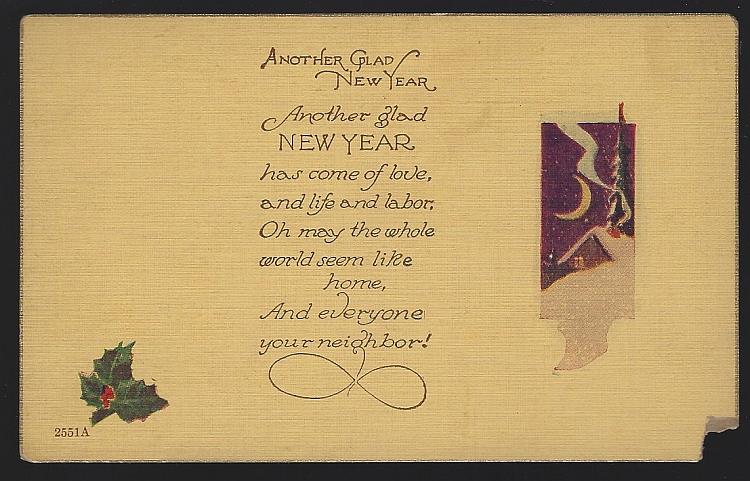 Another Glad
New Year
Another glad
NEW YEAR
has come of love,
and life and labor.
Oh may the whole
world seem like
home,
And everyone
your neighbor!
2551A